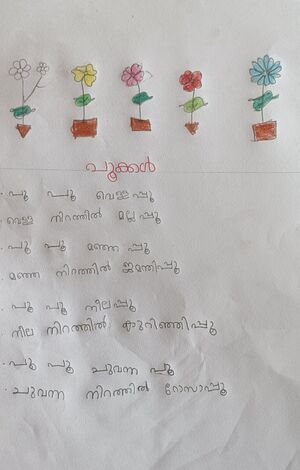 പൂക്കൾ
പൂ പൂ വെള്ളപ്പൂ
വെള്ള നിറത്തിൽ മുല്ലപ്പൂ
പൂ പൂ മഞ്ഞ പ്പൂ
മഞ്ഞ നിറത്തിൽ ജമന്തിപ്പൂ
പൂ പൂ നീലപ്പൂ
നീല നിറത്തിൽ കുറിഞ്ഞിപ്പൂ
പൂ പൂ ചുവന്ന പ്പൂ
ചുവന്ന നിറത്തിൽ റോസാപ്പൂ